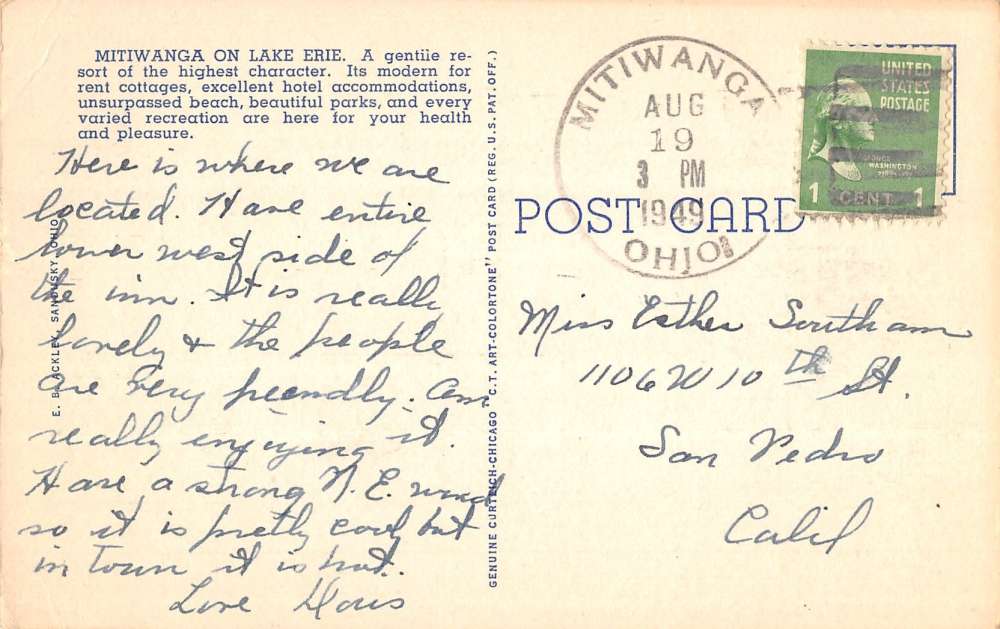 MITIWANGA ON LAKE ERIE. A gentile re-
sort of the highest character. Its modern for
rent cottages, excellent hotel accommodations,
unsurpassed beach, beautiful parks, and every
varied recreation are here for your health
and pleasure.
Here is where we are
located. Have entire
lower west side of
the inn. It is really
lovely & the people
are very friendly. Am
really enjoying it.
Have a strong N.E. wind
so it is pretty cool but
in town it is hot.
Love Doris
E. BLACKLEY, SANDUSKY, OHIO
GENUINE CURTEICH-CHICAGO "C.T. ART-COLORTONE" POST CARD (REG. U.S. PAT. OFF.)
MITIWANGA
AUG
19
3 PM
1949
OHIO
UNITED
STATES
POSTAGE
GEORGE
WASHINGTON
1 CENT 1
POST CARD
Miss Esther Southam
1106 W 10th St.
San Pedro
Calif